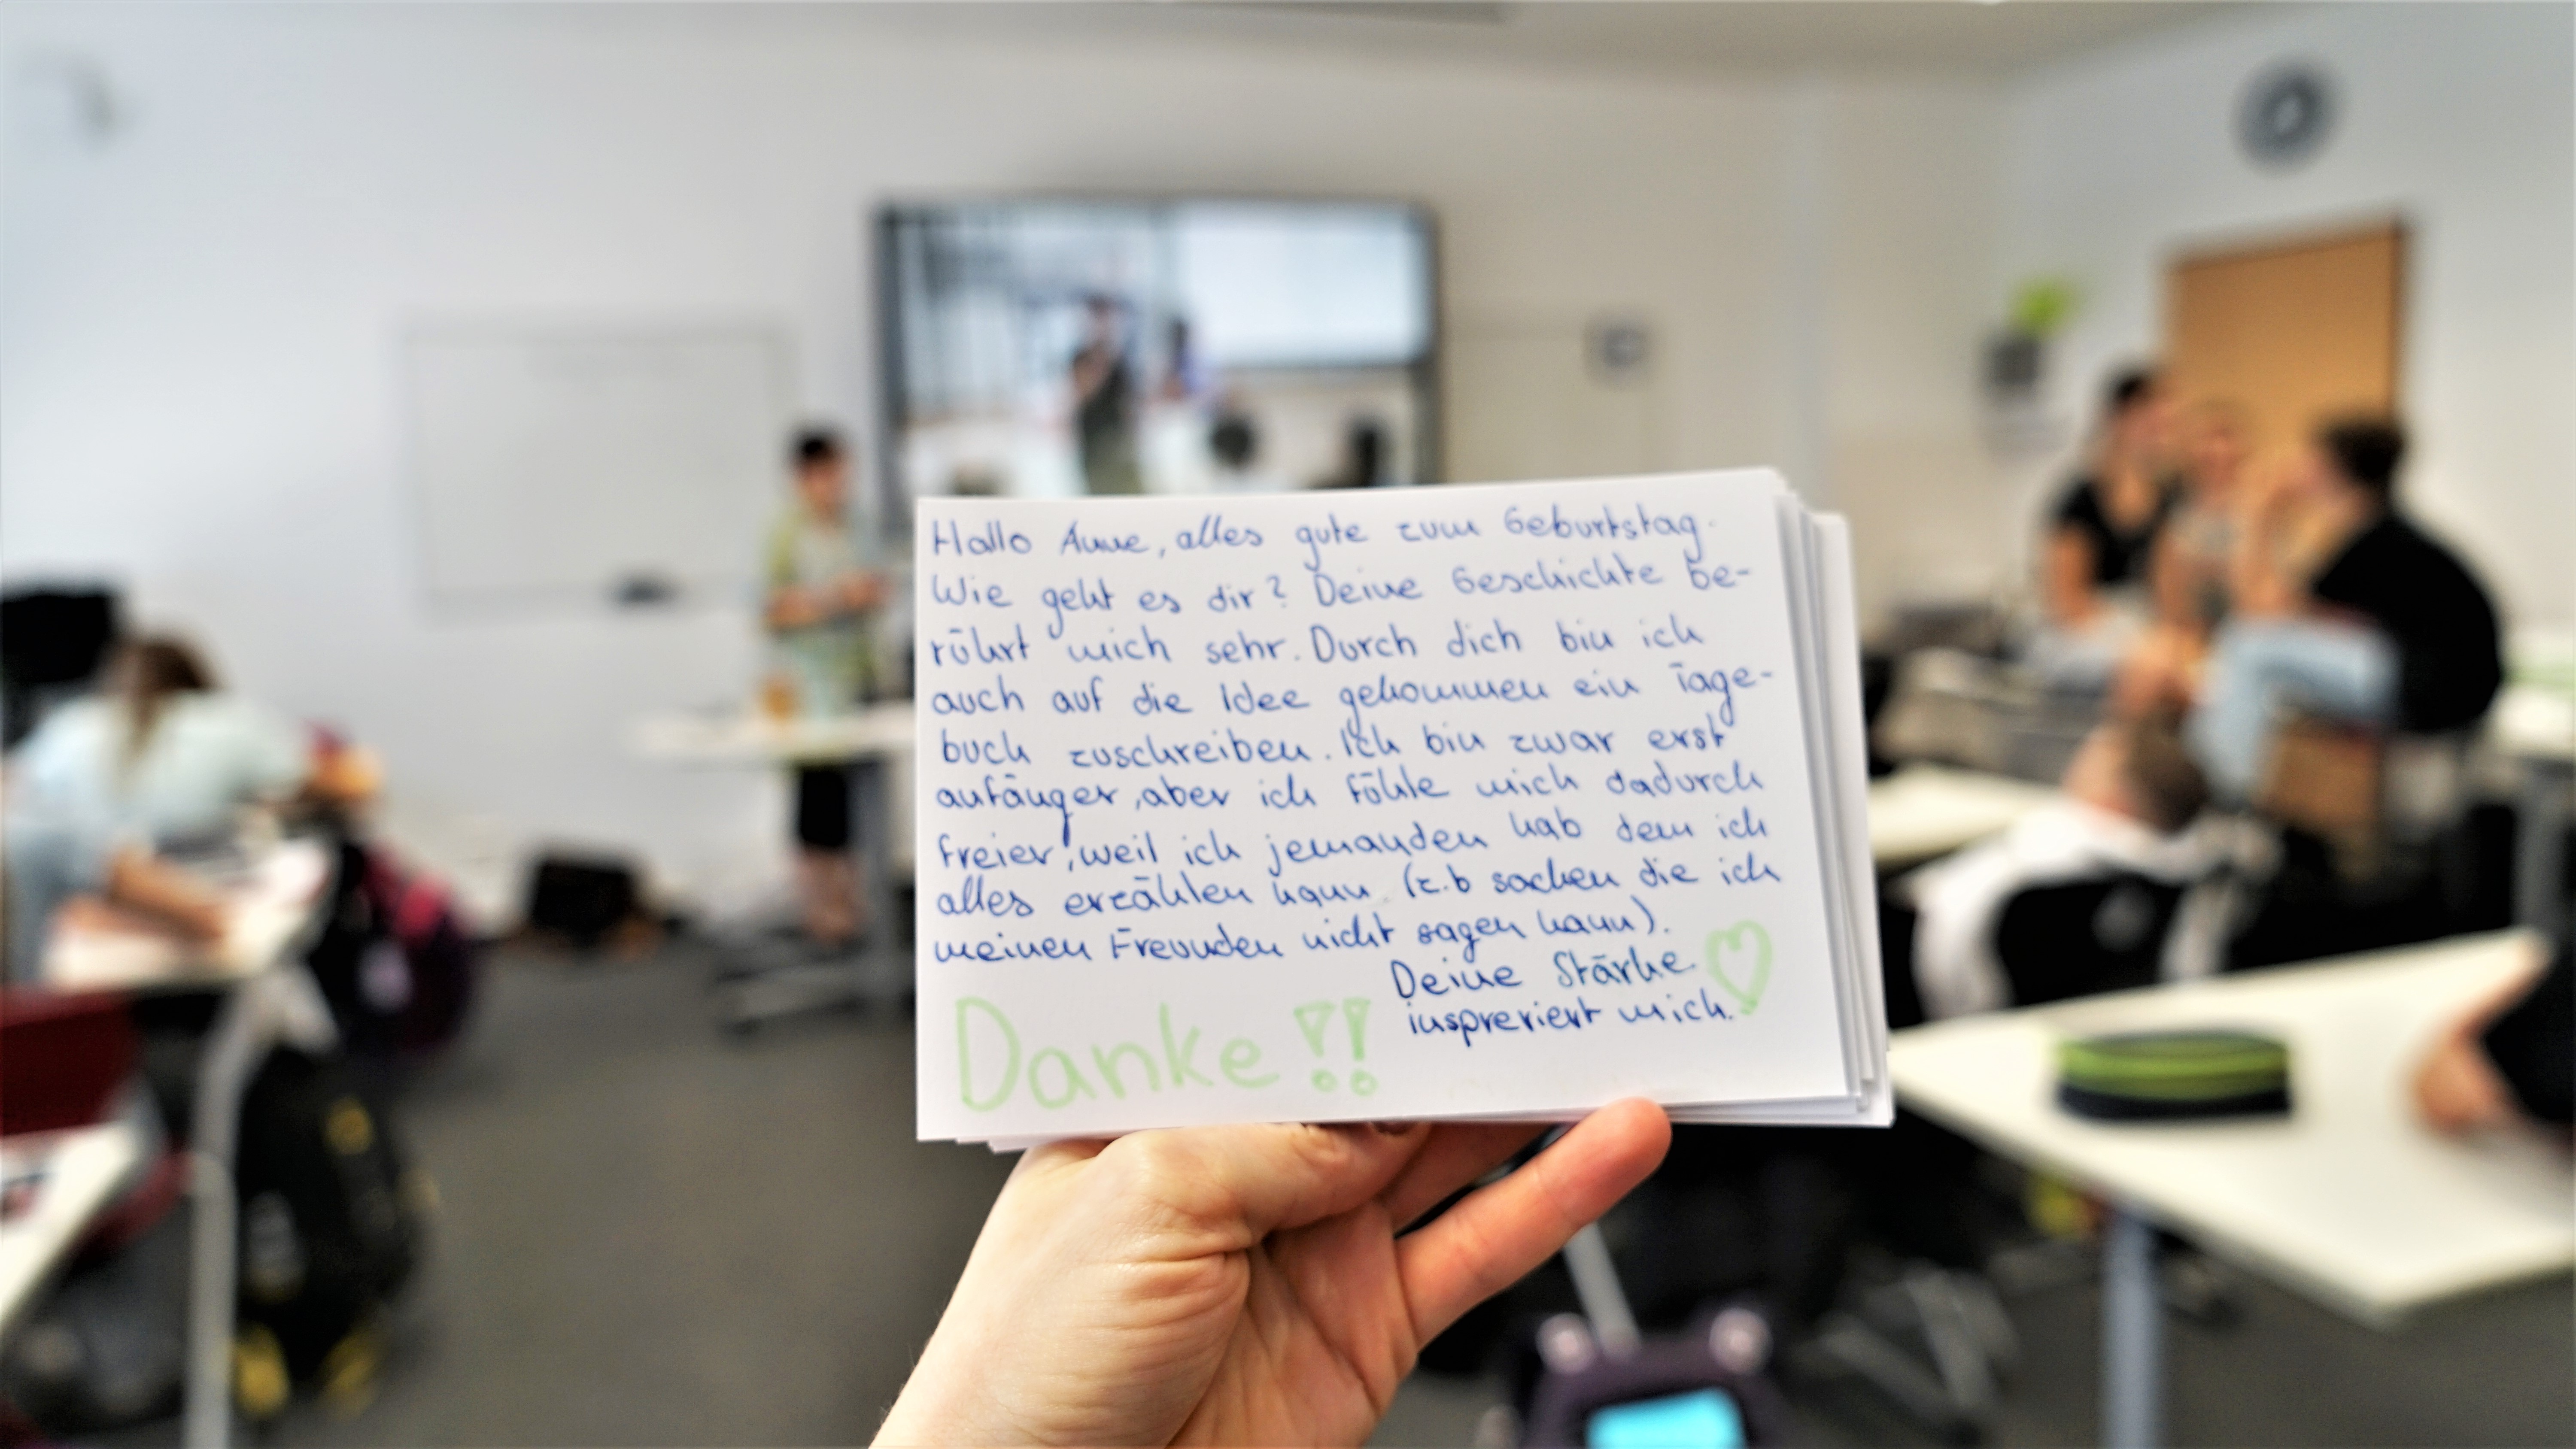 Hallo Anne, alles gute zum Geburtstag.
Wie geht es dir? Deine Geschichte be-
rührt mich sehr. Durch dich bin ich
auch auf die Idee gekommen ein Tage-
buch zuschreiben. Ich bin zwar erst
anfänger, aber ich fühle mich dadurch
freier, weil ich jemanden hab dem ich
alles erzählen kann. (z.b sachen die ich
meinen Freunden nicht sagen kann).
Deine Stärke
inspreriert mich.
Danke!!